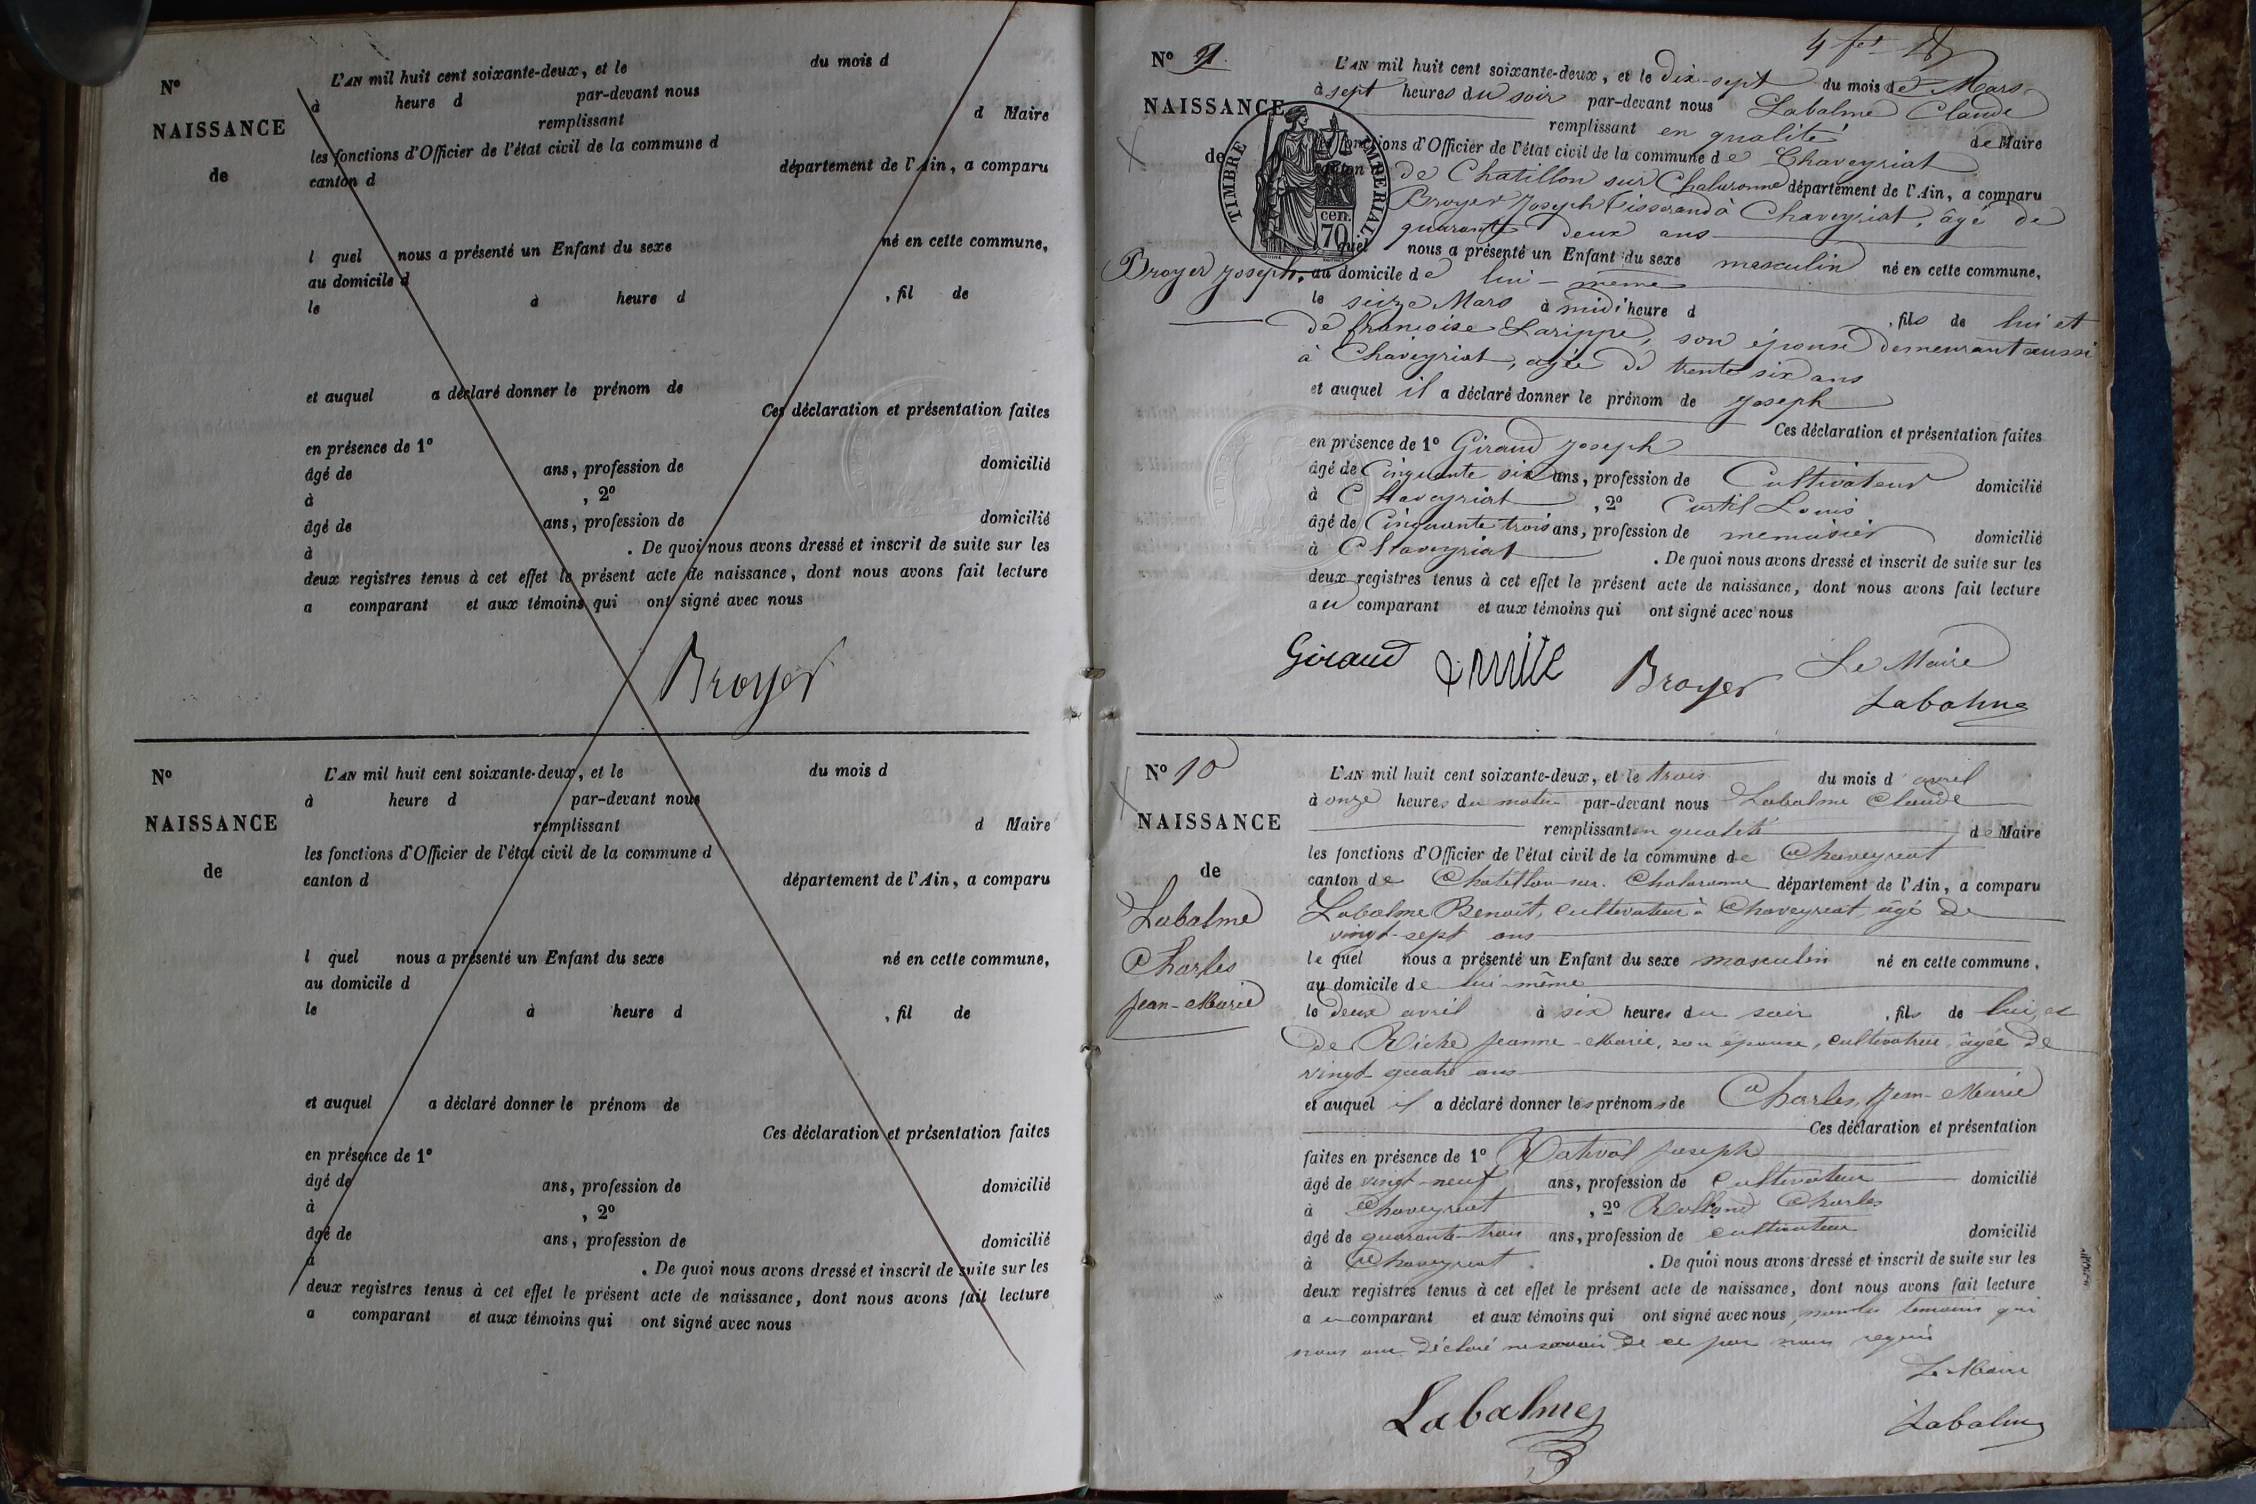 N°
NAISSANCE
de
L'AN mil huit cent soixante-deux, et le du mois d
à heure d par-devant nous
remplissant d Maire
les fonctions d'Officier de l'état civil de la commune d
canton d département de l'Ain, a comparu
l quel nous a présenté un Enfant du sexe né en cette commune,
au domicile d
le à heure d , fil de
et auquel a déclaré donner le prénom de
Ces déclaration et présentation faites
en présence de 1°
âgé de ans, profession de domicilié
à , 2°
âgé de ans, profession de domicilié
à . De quoi nous avons dressé et inscrit de suite sur les
deux registres tenus à cet effet le présent acte de naissance, dont nous avons fait lecture
a comparant et aux témoins qui ont signé avec nous
Broyer
N°
NAISSANCE
de
L'AN mil huit cent soixante-deux, et le du mois d
à heure d par-devant nous
remplissant d Maire
les fonctions d'Officier de l'état civil de la commune d
canton d département de l'Ain, a comparu
l quel nous a présenté un Enfant du sexe né en cette commune,
au domicile d
le à heure d , fil de
et auquel a déclaré donner le prénom de
Ces déclaration et présentation faites
en présence de 1°
âgé de ans, profession de domicilié
à , 2°
âgé de ans, profession de domicilié
à . De quoi nous avons dressé et inscrit de suite sur les
deux registres tenus à cet effet le présent acte de naissance, dont nous avons fait lecture
a comparant et aux témoins qui ont signé avec nous
N° 9.
NAISSANCE
de
Broyer Joseph.
TIMBRE IMPERIAL
70 cen.
L'AN mil huit cent soixante-deux, et le dix-sept du mois de Mars
à sept heures du soir par-devant nous Labalme Claude
remplissant en qualité de Maire
les fonctions d'Officier de l'état civil de la commune de Chaveyriat
canton de Chatillon sur Chalaronne département de l'Ain, a comparu
Broyer Joseph tisserand à Chaveyriat, âgé de
quarante deux ans
quel nous a présenté un Enfant du sexe masculin né en cette commune,
au domicile de lui-même
le seize Mars à midi heure d , fils de lui et
de francoise Larippe, son épouse demeurant aussi
à Chaveyriat, agée de trente six ans
et auquel il a déclaré donner le prénom de Joseph
Ces déclaration et présentation faites
en présence de 1° Giraud Joseph
âgé de Cinquante six ans, profession de Cultivateur domicilié
à Chaveyriat , 2° Curtil Louis
âgé de Cinquante trois ans, profession de menuisier domicilié
à Chaveyriat . De quoi nous avons dressé et inscrit de suite sur les
deux registres tenus à cet effet le présent acte de naissance, dont nous avons fait lecture
au comparant et aux témoins qui ont signé avec nous
Giraud Broyer Le Maire
Labalme
N° 10
NAISSANCE
de
Labalme
Charles
Jean-Marie
L'AN mil huit cent soixante-deux, et le trois du mois d'avril
à onze heures du matin par-devant nous Labalme Claude
remplissant en qualité de Maire
les fonctions d'Officier de l'état civil de la commune de Chaveyriat
canton de Chatillon-sur-Chalaronne département de l'Ain, a comparu
Labalme Benoît, cultivateur à Chaveyriat âgé de
vingt-sept ans
le quel nous a présenté un Enfant du sexe masculin né en cette commune,
au domicile de lui-même
le deux avril à six heures du soir , fils de lui, et
de Riche Jeanne-Marie, son épouse, cultivatrice âgée de
vingt-quatre ans
et auquel il a déclaré donner les prénoms de Charles, Jean-Marie
Ces déclaration et présentation
faites en présence de 1° Joseph
âgé de vingt-neuf ans, profession de cultivateur domicilié
à Chaveyriat , 2° Rolland Charles
âgé de quarante-trois ans, profession de cultivateur domicilié
à Chaveyriat . De quoi nous avons dressé et inscrit de suite sur les
deux registres tenus à cet effet le présent acte de naissance, dont nous avons fait lecture
au comparant et aux témoins qui ont signé avec nous, témoins qui
nous ont déclaré ne savoir de ce par nous requis
Le Maire
Labalme Labalme